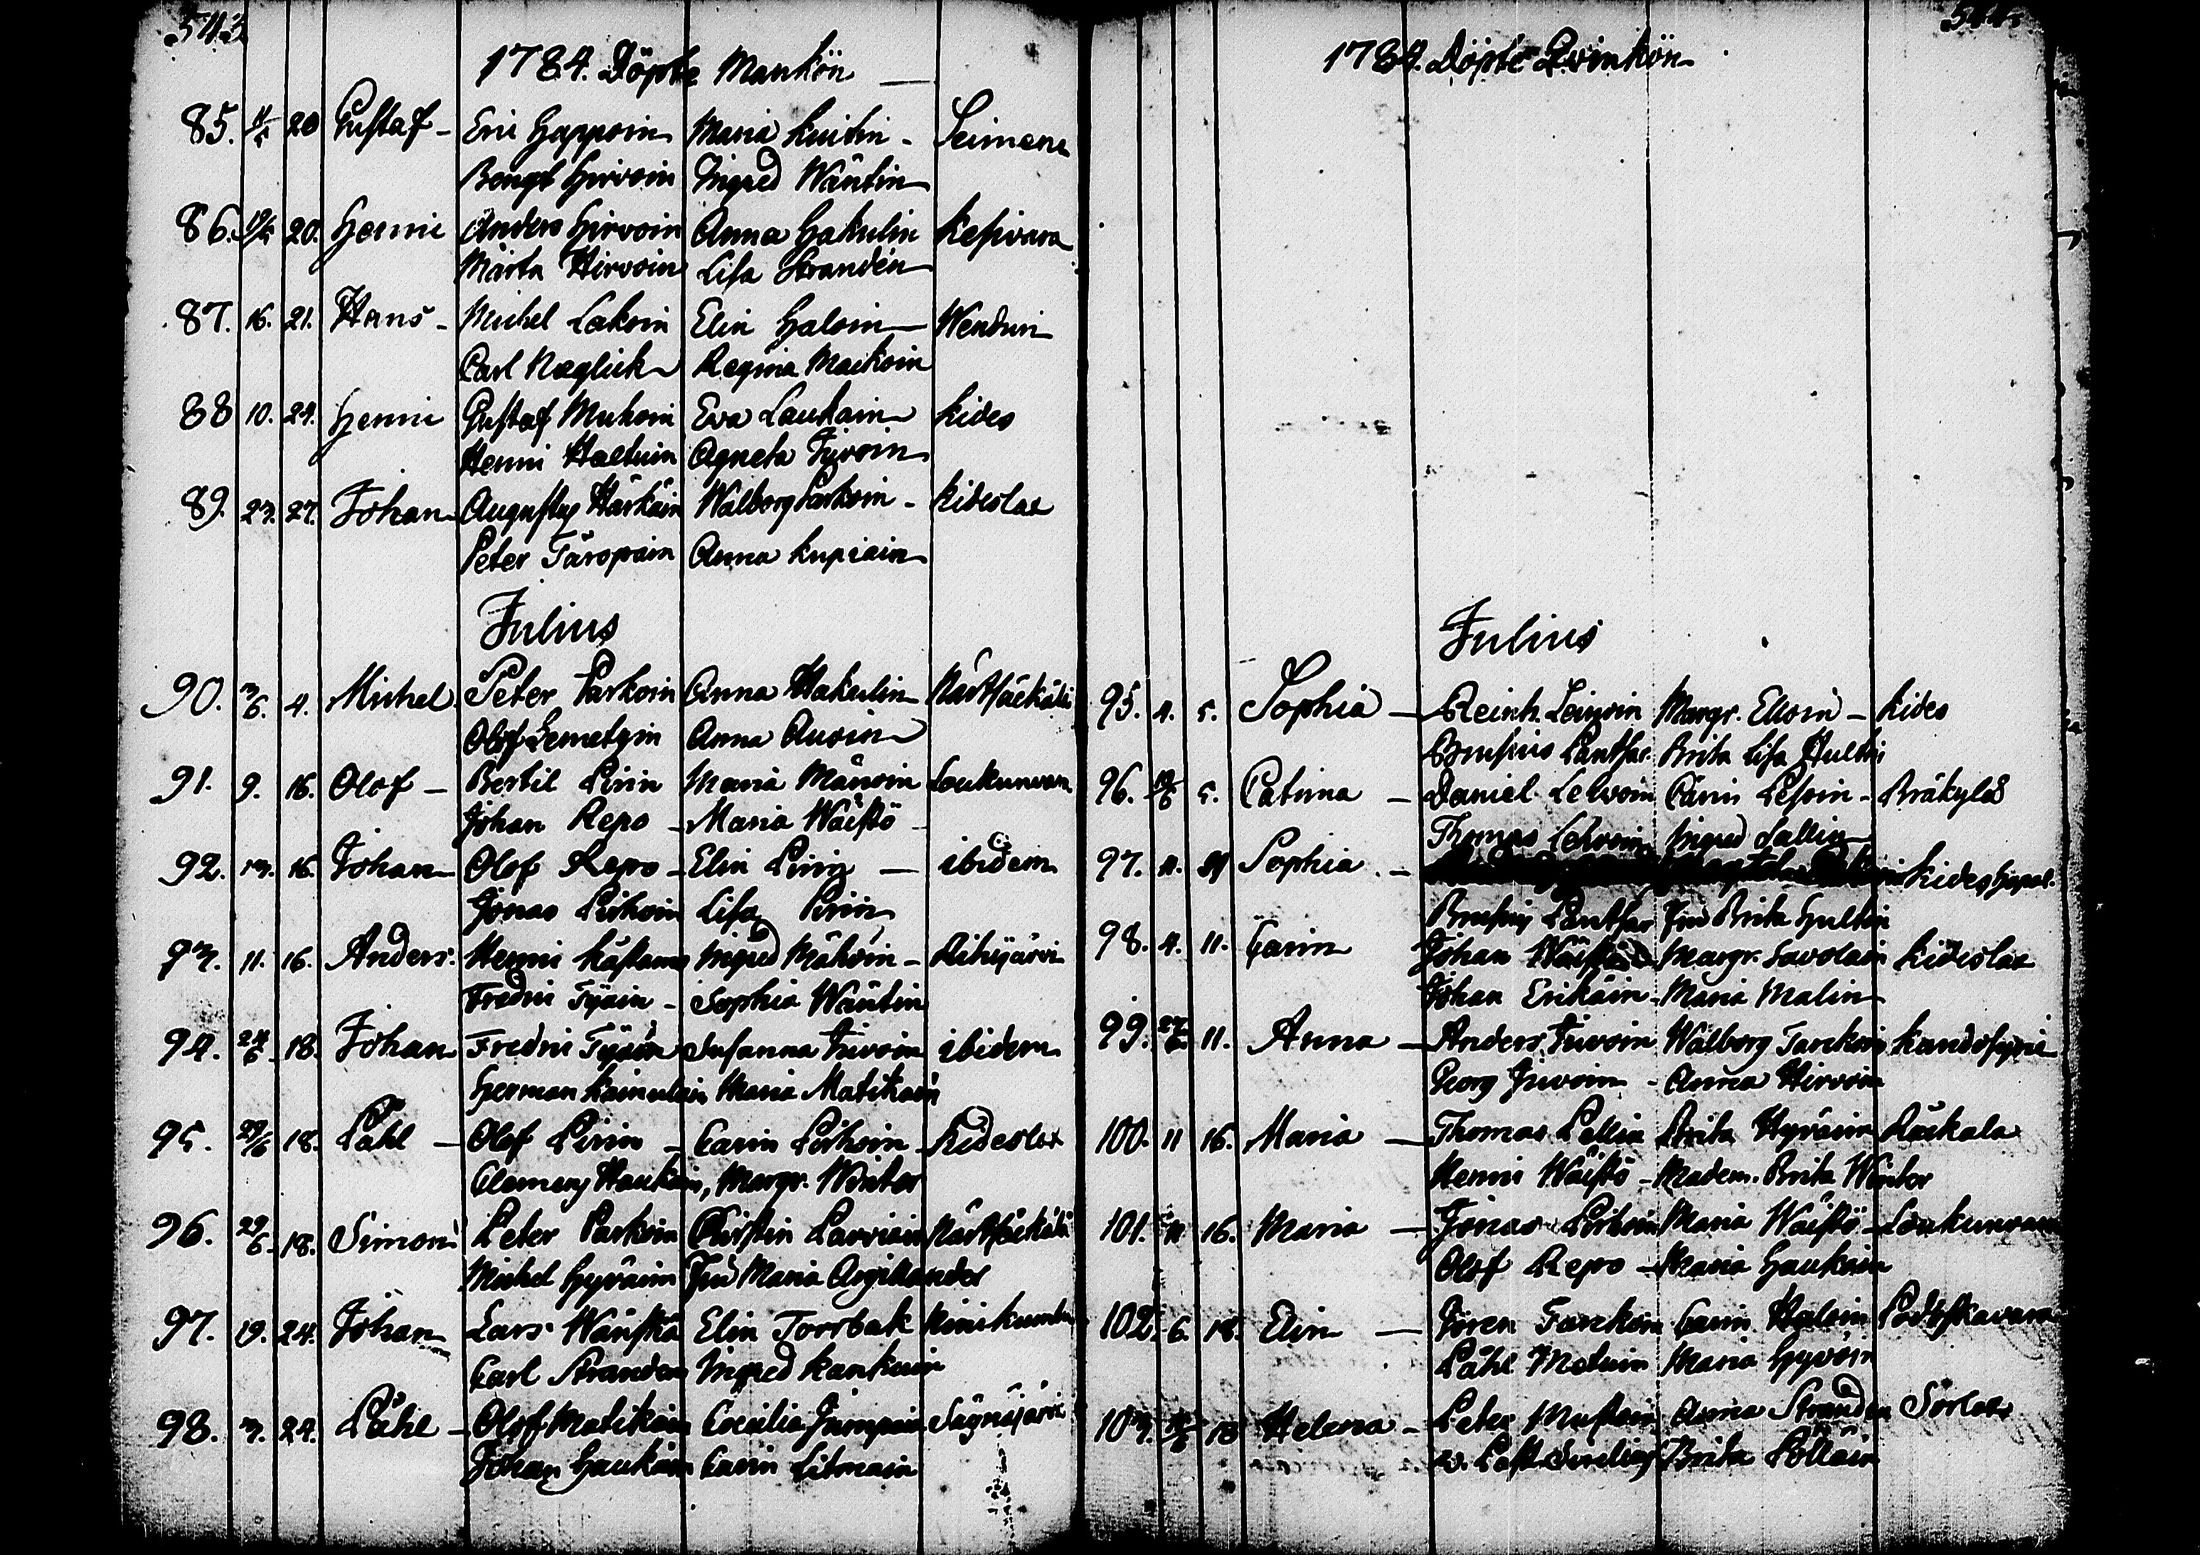 543
1784. Döpte Mankön
85. 20 Gustaf - Eric Happoin Maria Kuitin - Seimene
Bengt Hirvoin Ingred Wäntin
86. 20. Henric Anders Hirvoin Anna Hakulin Kesivara
Märta Hirvoin Lisa Strandén
87. 16. 21. Hans - Michel Lakoin Elin Haloin Wendun
Carl Næglick Regina Maikoin
88 10. 24. Henric Gustaf Mukoin Eva Laukain Kides
Henric Agneta Juvoin
89. 23. 27. Johan Augustus Härkäin Walborg Parkoin - Kideslax
Peter Täropain Anna Kupiain
Julius
90. 3/6. 4. Michel Peter Parkoin Anna Hakulin
Olof Semetgin Anna Auvin
91. 9. 16. Olof - Bertil Pirin Maria Mänoin Loukunvara
Johan Repo - Maria Wäistö
92. 13. 16. Johan Olof Repo - Elin Pirin - ibidem
Jonas Pirhoin Lisa Pirin
93. 11. 16. Anders. Henric Ingred Mähöin - Riihijärvi
Fredric Tyäin - Sophia Wäntin
94. 24/6 18. Johan Fredric Tyäin Susanna Juvoin ibidem
Herman Kainulain Maria Matikain
95. 29/6 18. Påhl - Olof Pirin - Carin Pirhoin Kideslax
Clemens Haukain, Margr. Winter
96. 29/6. 18. Simon Peter Parkoin Christin Larviain
Michel Hyväin Fru Maria Argillander
97. 19. 24. Johan Lars Wänskä Elin Torrbak Kinikumbu
Carl Stranden Ingred Kankuin
98. 3. 24. Påhl - Olof Matikain Cæcilia Jumpain Säynäjärvi
Johan Haukain Carin Litmain
544
1784. Döpte Qvinkön
Julius
95. 4. 5. Sophia - Reinh. Leinoin Margr. Elloin - Kides
Brusius Panthar. Brita Lisa Hultin
96. 5. Catrina - Daniel Lelvoin Carin Pesoin - Bräkylä
Thomas Ingred Sallin
97. Sophia - Kides
Brusius Panthar Fru Brita Hultin
98. 4. 11. Carin Johan Wäistö Margr. Savolain Kideslax
Johan Erikäin - Maria Malin
99. 11. Anna - Anders Juvoin Walborg Tarckoin
Georg Juvoin - Anna Hirvoin
100. 11 16. Maria - Thomas Pellin Brita Hyväin Räckala
Henric Wäistö - Madem. Brita Winter
101. 11 16. Maria - Jonas Pirhoin Maria Wäistö - Loukunvara
Olof Repo - Maria Haukain
102. 6. 18. Elin - Jören Tarckoin Carin Haloin Podoskavara
Påhl Matuin Maria Hyvöin
103. 18 Helena - Peter Mustoin Anna Stranden Sorlax
Brita Pölläin